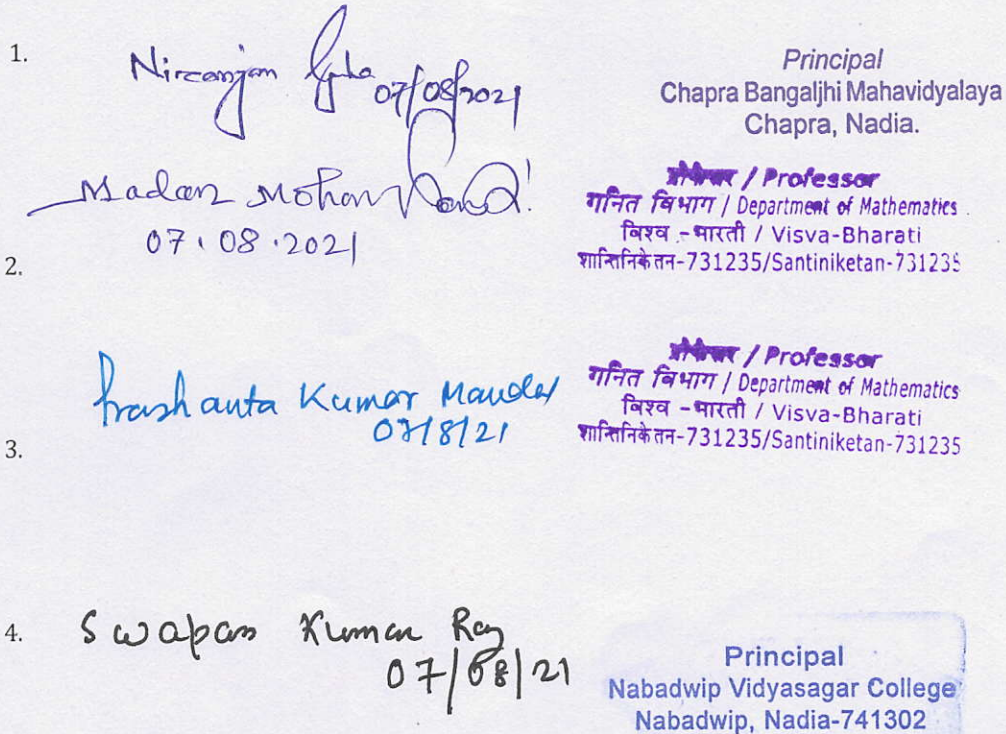 1.
Nircanjan Guha 07/08/2021
Principal
Chapra Bangaljhi Mahavidyalaya
Chapra, Nadia.
Madan Mohan
07.08.2021
2.
/ Professor
गनित विभाग / Department of Mathematics
विश्व - भारती / Visva-Bharati
शान्तिनिकेतन-731235/Santiniketan-731235
Prashanta Kumar Mandal
07/8/21
3.
/ Professor
गनित विभाग / Department of Mathematics
विश्व - भारती / Visva-Bharati
शान्तिनिकेतन-731235/Santiniketan-731235
4.
Swapan Kumar Roy
07/08/21
Principal
Nabadwip Vidyasagar College
Nabadwip, Nadia-741302